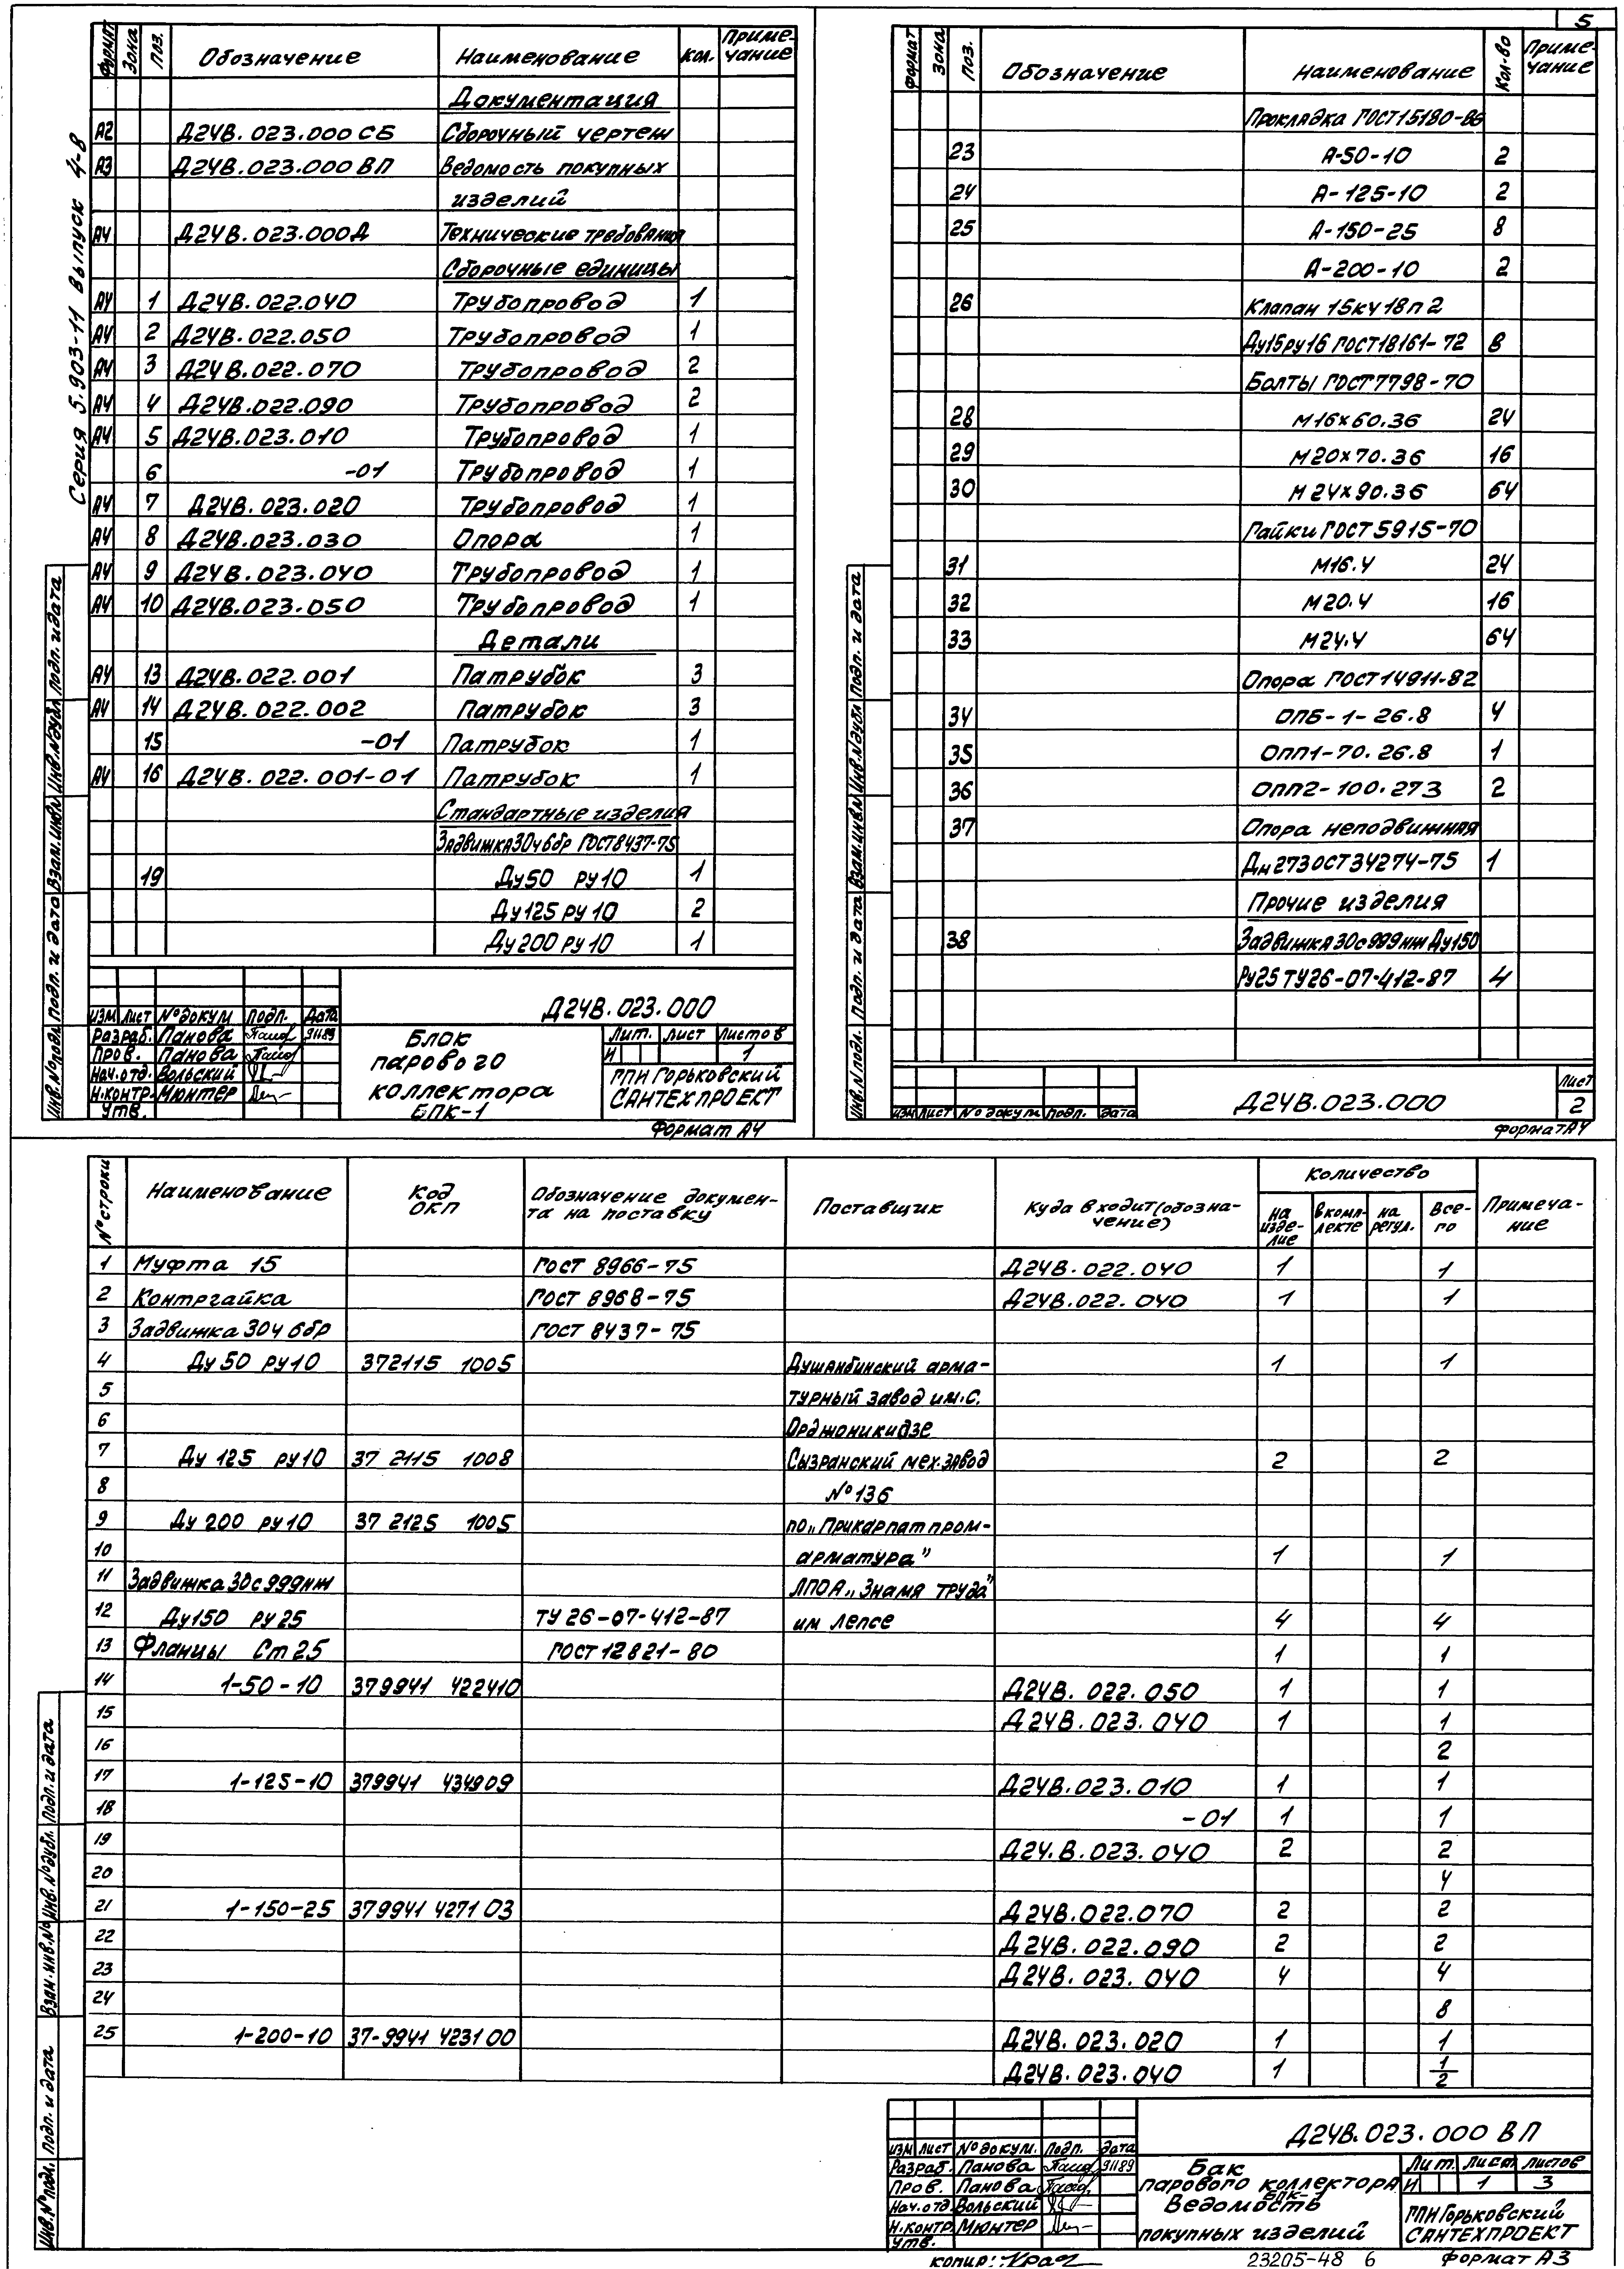 5
Серия 5.903-11 Выпуск 4-8
Формат Зона Поз. Обозначение Наименование Кол. Примечание
Документация
А2 Д24В.023.000 СБ Сборочный чертеж
А3 Д24В.023.000 ВП Ведомость покупных
изделий
А4 Д24В.023.000Д Технические требования
Сборочные единицы
А4 1 Д24В.022.040 Трубопровод 1
А4 2 Д24В.022.050 Трубопровод 1
А4 3 Д24В.022.070 Трубопровод 2
А4 4 Д24В.022.090 Трубопровод 2
А4 5 Д24В.023.010 Трубопровод 1
6 -01 Трубопровод 1
А4 7 Д24В.023.020 Трубопровод 1
А4 8 Д24В.023.030 Опора 1
А4 9 Д24В.023.040 Трубопровод 1
А4 10 Д24В.023.050 Трубопровод 1
Детали
А4 13 Д24В.022.001 Патрубок 3
А4 14 Д24В.022.002 Патрубок 3
15 -01 Патрубок 1
А4 16 Д24В.022.001-01 Патрубок 1
Стандартные изделия
Задвижка 30ч6бр ГОСТ8437-75
19 Ду50 ру10 1
Ду125 ру10 2
Ду200 ру10 1
Инв.№подл. Подп. и дата Взам.инв.№ Инв.№дубл. Подп. и дата
Изм Лист №докум Подп. Дата
Разраб. Панова 91189
Пров. Панова
Нач.отд. Вольский
Н.контр. Мюнтер
Утв.
Д24В.023.000
Блок
парового
коллектора
БПК-1
Лит. Лист Листов
И 1
ГПИ Горьковский
САНТЕХПРОЕКТ
Формат А4
Формат Зона Поз. Обозначение Наименование Кол-во Примечание
Прокладка ГОСТ15180-86
23 А-50-10 2
24 А-125-10 2
25 А-150-25 8
А-200-10 2
26 Клапан 15кч18п2
Ду15ру16 ГОСТ18161-72 8
Болты ГОСТ7798-70
28 М16х60.36 24
29 М20х70.36 16
30 М24х90.36 64
Гайки ГОСТ 5915-70
31 М16.4 24
32 М20.4 16
33 М24.4 64
Опора ГОСТ14911-82
34 ОПБ-1-26.8 4
35 ОПП1-70.26.8 1
36 ОПП2-100.273 2
37 Опора неподвижная
Дн273ОСТ34274-75 1
Прочие изделия
38 Задвижка 30с999нж Ду150
Ру25 ТУ26-07-412-87 4
Инв.№подл. Подп. и дата Взам.инв.№ Инв.№дубл Подп. и дата
Изм Лист №докум Подп. Дата
Д24В.023.000
Лист
2
Формат А4
№строки Наименование Код ОКП Обозначение документа на поставку Поставщик Куда входит (обозначение) Количество Примечание
на изделие в комплекте на регул. Всего
1 Муфта 15 ГОСТ 8966-75 Д24В.022.040 1 1
2 Контргайка ГОСТ 8968-75 Д24В.022.040 1 1
3 Задвижка 30ч6бр ГОСТ 8437-75
4 Ду 50 ру10 372115 1005 Душанбинский арма- 1 1
5 турный завод им.С.
6 Орджоникидзе
7 Ду 125 ру10 37 2115 1008 Сызранский мех.завод 2 2
8 №136
9 Ду 200 ру10 37 2125 1005 по „Прикарпатпром-
10 арматура" 1 1
11 Задвижка 30с999нж ЛПОА „Знамя труда"
12 Ду150 ру25 ТУ 26-07-412-87 им Лепсе 4 4
13 Фланцы Ст25 ГОСТ12821-80 1 1
14 1-50-10 379941 422410 Д24В.022.050 1 1
15 Д24В.023.040 1 1
16 2
17 1-125-10 379941 434909 Д24В.023.010 1 1
18 -01 1 1
19 Д24.В.023.040 2 2
20 4
21 1-150-25 379941 427103 Д24В.022.070 2 2
22 Д24В.022.090 2 2
23 Д24В.023.040 4 4
24 8
25 1-200-10 37-9941 423100 Д24В.023.020 1 1
Д24В.023.040 1 1
2
Инв.№подл. Подп. и дата Взам.инв.№ Инв.№дубл. Подп. и дата
Изм Лист №докум. Подп. Дата
Разраб. Панова 91189
Пров. Панова
Нач.отд. Вольский
Н.контр. Мюнтер
Утв.
Д24В.023.000 ВП
Бак
парового коллектора
БПК-1
Ведомость
покупных изделий
Лит. Лист Листов
И 1 3
ГПИ Горьковский
САНТЕХПРОЕКТ
копир:
23205-48 6
Формат А3